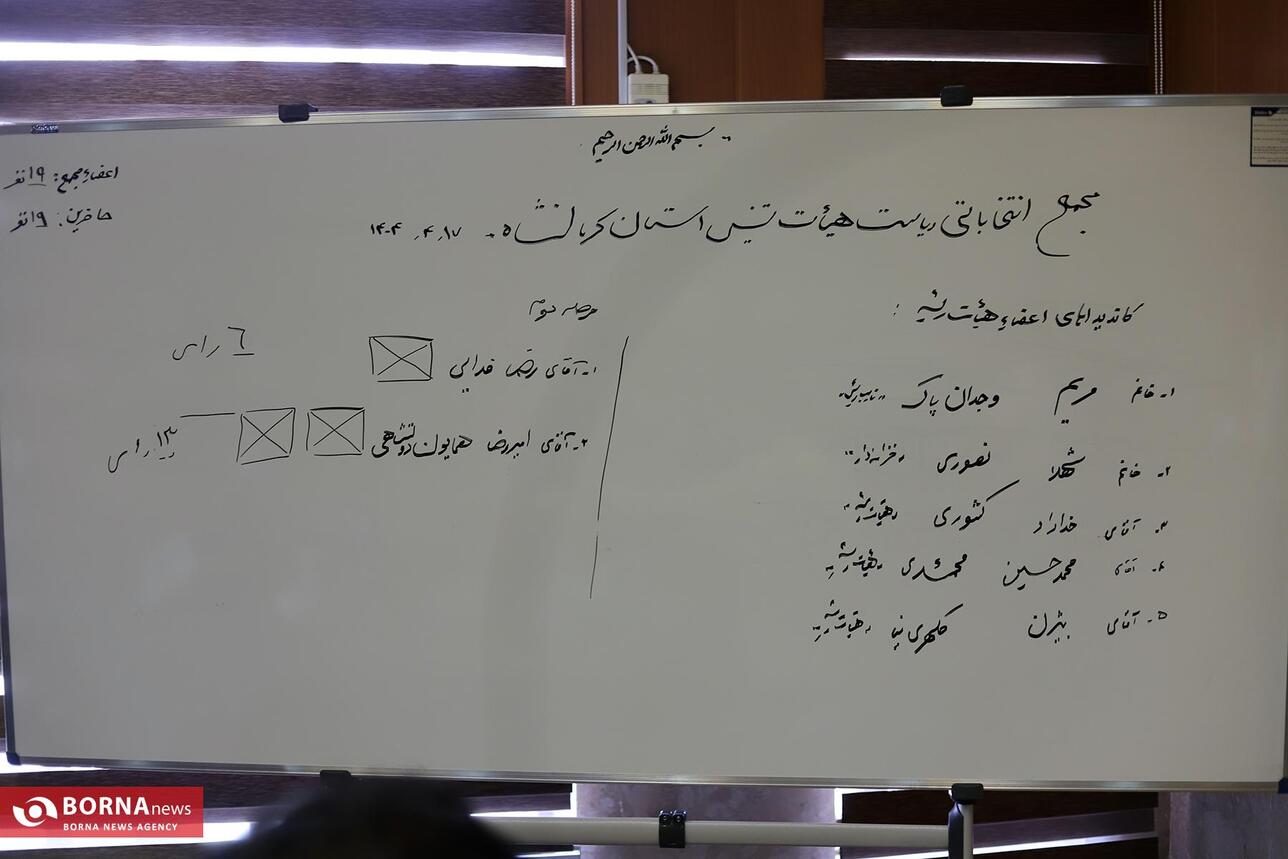 بسم الله الرحمن الرحیم
اعضاء مجمع: ۱۹ نفر
حاضرین: ۱۹ نفر
مجمع انتخاباتی ریاست هیأت تنیس استان کرمانشاه - ۱۴۰۴٫۴٫۱۷
کاندیداهای اعضاء هیأت رئیسه :
۱- خانم مریم وجدان پاک "نایب رئیس"
۲- خانم شهلا تصوری "خزانه دار"
۳- آقای خداراد کشوری "هیأت رئیسه"
۴- آقای محمدحسین محمدی "هیأت رئیسه"
۵- آقای بیژن کلهری نیا "هیأت رئیسه"
مرحله دوم
۱- آقای رضا فدایی ۶ رای
۲- آقای امیررضا همایون دولتشاهی ۱۳ رای
BORNA news
BORNA NEWS AGENCY